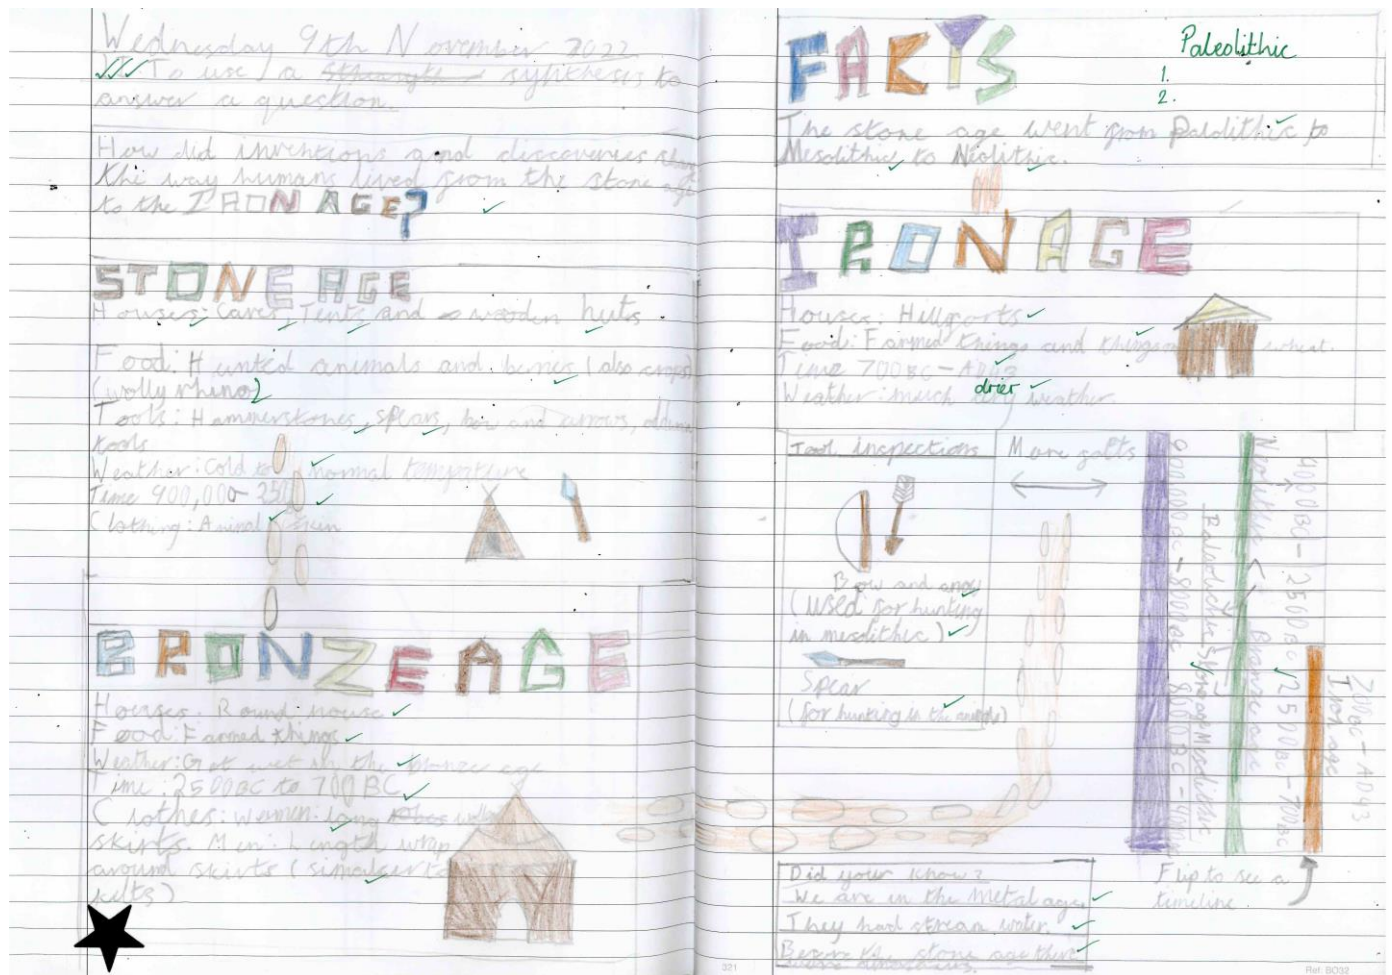 Wednesday 9th November 2022
To use a synthesis to
answer a question.
How did inventions and discoveries
the way humans lived from the stone age
to the IRON AGE?
STONE AGE
Houses: Caves, Tents and wooden huts
Food: Hunted animals and berries (also crops)
(wolly rhino)
Tools: Hammerstones, spears, bow and arrows,
tools
Weather: Cold to normal temperature
Time 900,000- 2500
Clothing: Animal skin
BRONZE AGE
Houses: Round house
Food: Farmed things
Weather: Got wet in the bronze age
Time: 2500BC to 700BC
Clothes: Women: long
skirts. Men: Length wrap
around skirts (similser to
kilts)
FAKTS
Paleolithic
1.
2.
The stone age went from Palolithic to
Mesolithic to Neolithic.
IRON AGE
Houses: Hillforts
Food: Farmed things and things wheat.
Time 700BC-AD43
drier
Weather: much weather
Tool inspections
More facts
Bow and array
(used for hunting
in mesolithic)
Spear
(for hunting in the)
900,000BC - 8000BC 8000BC - 4000BC
Paleolithic Stone age Mesolithic
Neolithic Bronze age
4000BC - 2500BC 2500BC - 700BC
700BC - AD43
Iron age
Flip to see a
timeline.
Did your know?
We are in the metal age.
They had strean water.
Before the stone age there
321
Ref: BO32